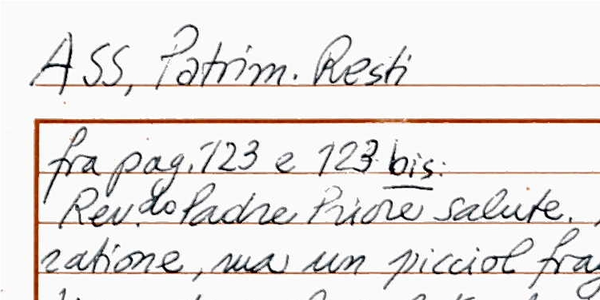 Ass, Patrim. Resti
fra pag. 123 e 123 bis:
Rev.do Padre Priore salute.
ratione, ma un picciol frag